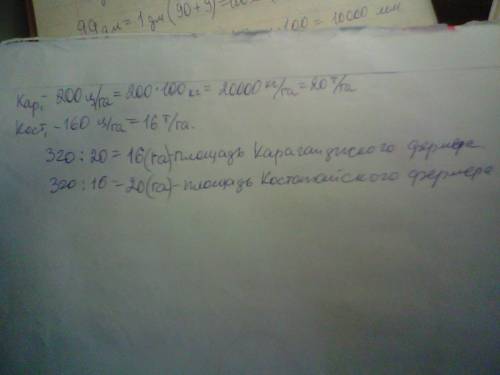 99дм = 1дм(90+9) =
100 = 10000 мм
Кар, - 200 ц/га = 200·100 кг = 20000 кг/га = 20 т/га
Кост, - 160 ц/га = 16 т/га.
320 : 20 = 16 (га) - площадь Карагандиского фермера
320 : 16 = 20 (га) - площадь Костанайского фермера.